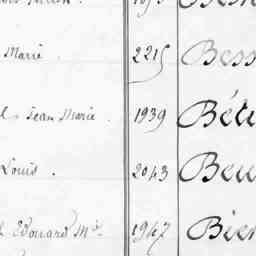 Marie 2215 Bess
Jean Marie 1939 Bét
Louis . 2043 Beu
Edouard Mel 1947 Bier